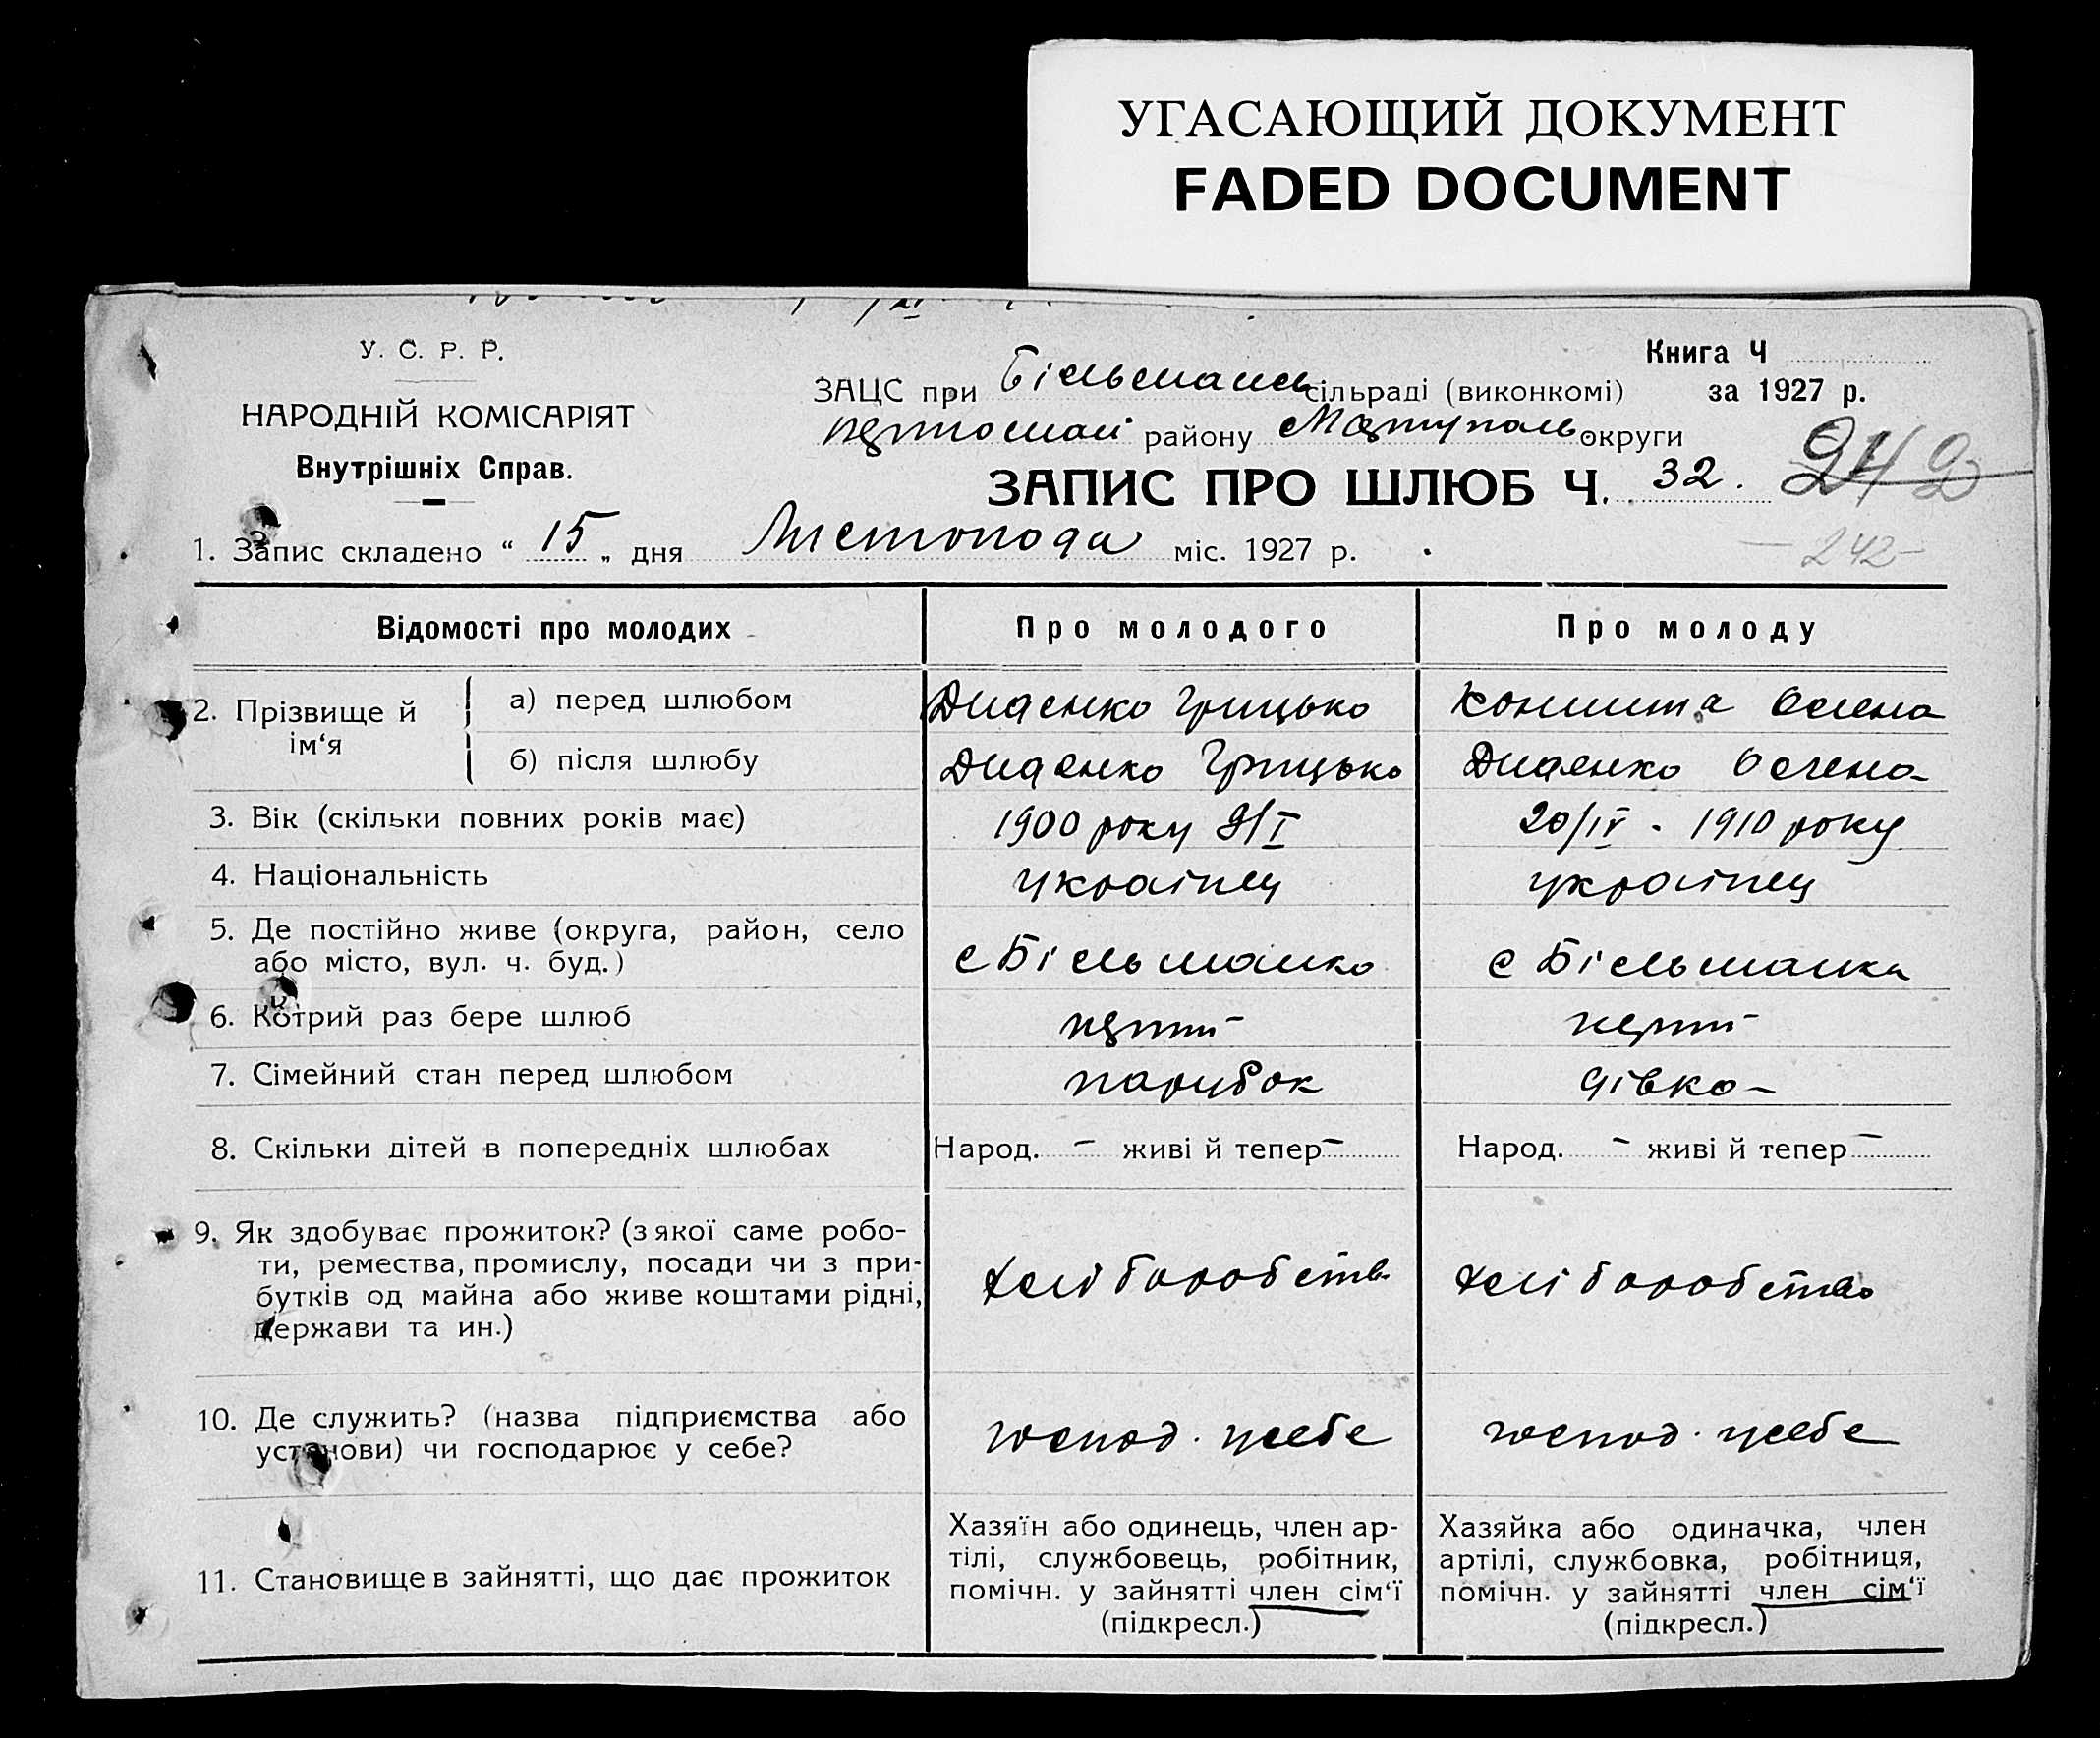 УГАСАЮЩИЙ ДОКУМЕНТ
FADED DOCUMENT
У. С. Р. Р.
НАРОДНІЙ КОМІСАРІЯТ
Внутрішніх Справ.
Книга Ч
за 1927 р.
ЗАЦС при Більмансь сільраді (виконкомі)
району Маріуполь округи
ЗАПИС ПРО ШЛЮБ Ч. 32. 242
242
1. Запис складено “ 15 „ дня Листопода міс. 1927 р.
Відомості про молодих Про молодого Про молоду
2. Прізвище й ім‘я
а) перед шлюбом Диденко Грицько Олена
б) після шлюбу Диденко Грицько Диденко Олена
3. Вік (скільки повних років має) 1900 року 9/I 20/IV. 1910 року
4. Національність українец українец
5. Де постійно живе (округа, район, село
або місто, вул. ч. буд.) с Більманка с Більманка
6. Котрий раз бере шлюб перший перший
7. Сімейний стан перед шлюбом парубок дівка
8. Скільки дітей в попередніх шлюбах Народ. – живі й тепер – Народ. – живі й тепер –
9. Як здобуває прожиток? (з якої саме робо-
ти, ремества, промислу, посади чи з при-
бутків од майна або живе коштами рідні,
держави та ин.)
хліборобств хліборобство
10. Де служить? (назва підприємства або
установи) чи господарює у себе?
господ. у себе господ. у себе
11. Становище в зайнятті, що дає прожиток
Хазяїн або одинець, член ар-
тілі, службовець, робітник,
помічн. у зайнятті член сім‘ї
(підкресл.)
Хазяйка або одиначка, член
артілі, службовка, робітниця,
помічн. у зайнятті член сім‘ї
(підкресл.)